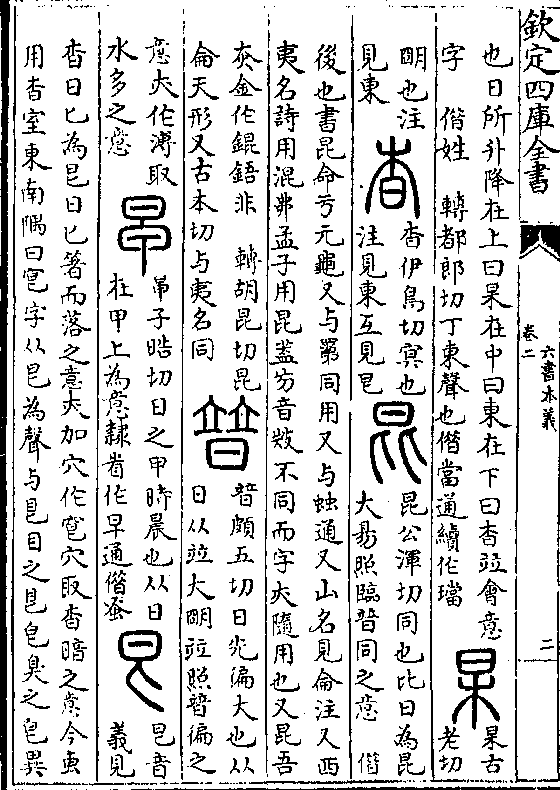 欽定四庫全書
卷二
六書本義
二
也日所升降在上曰杲在中曰東在下曰杳竝會意
字 偕姓 轉都郎切丁東聲也偕當通續作璫
杲
杲古
老切
明也注
見東
杳
杳伊鳥切冥也
注見東互見皀
昆
昆公渾切同也比日為昆
大易照臨普同之意 偕
後也書昆命于元龜又与䍘同用又与䖵通又山名見侖注又西
夷名詩用混夷孟子用昆蓋方音𣀙不同而字亦隨用也又昆吾
赤金作錕鋙非 轉胡昆切昆
侖天形又古本切与夷名同
普
普頗五切日光徧大也从
日从竝大明竝照普徧之
意亦作溥取
水多之意
早
早子晧切日之甲時晨也从日
在甲上為意隸省作早通偕蚤
皀
皀音
義見
杳日匕為皀日匕箸而落之意亦加穴作窅穴取杳暗之意今虫
用杳室東南隅曰窔字从皀為聲与皃目之皃皀臭之皀異